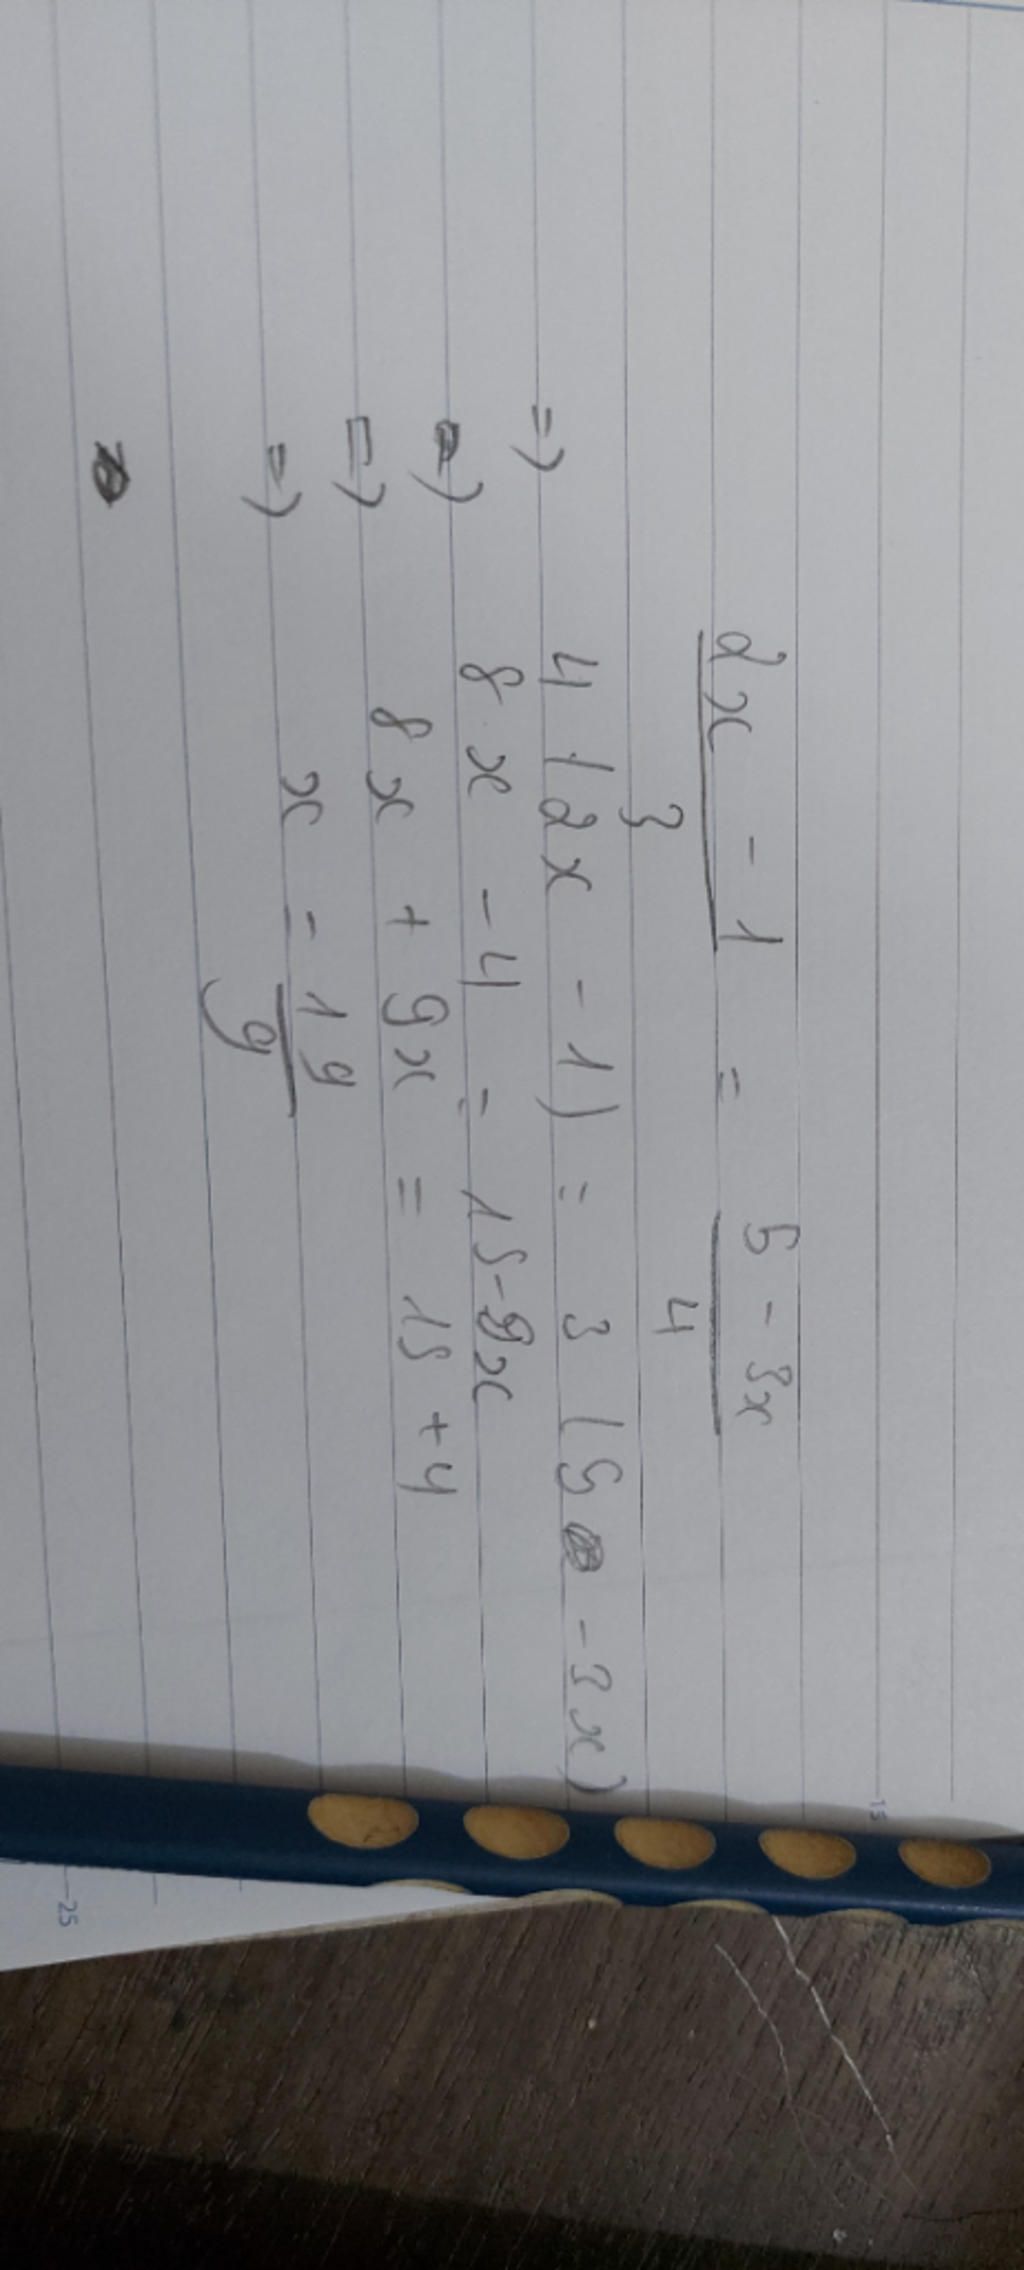 2x - 1 = 5 - 3x
3 4
=> 4 (2x - 1) = 3 (5 - 3x)
=> 8x - 4 = 15 - 9x
=> 8x + 9x = 15 + 4
=> x = 19
9
15
25